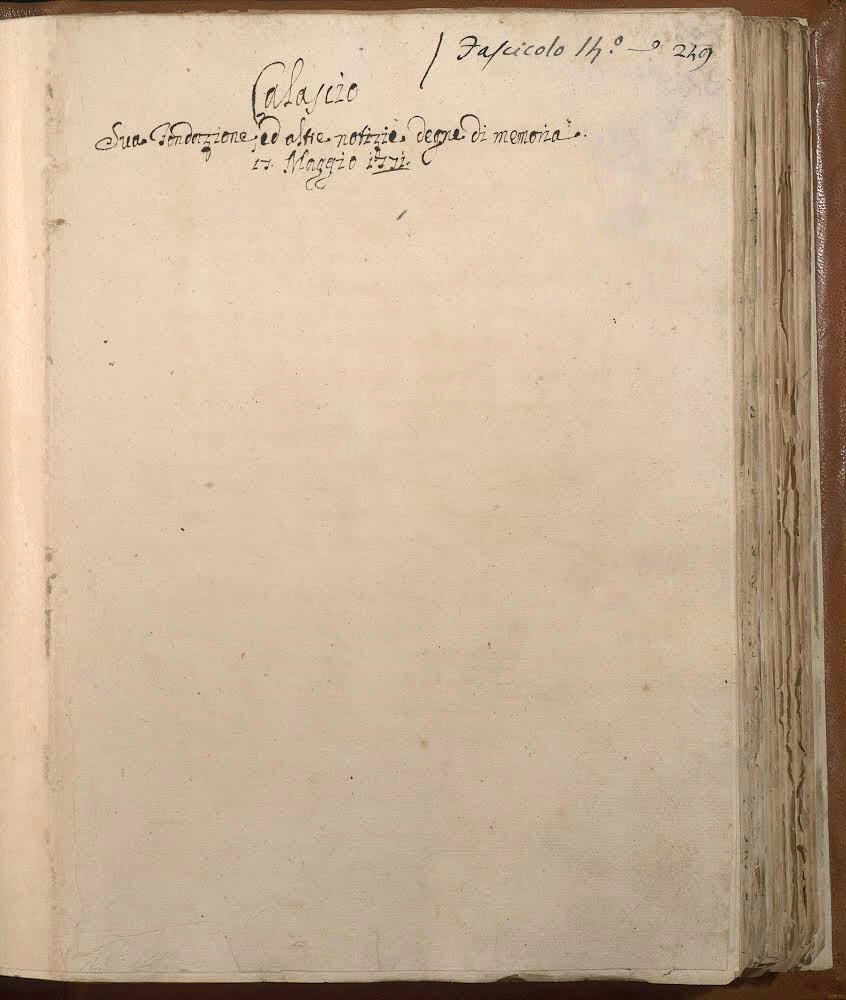 Fascicolo 14.º — º 249
Calascio
Sua Fondazione, ed altre notizie degne di memoria.
17. Maggio 1771.